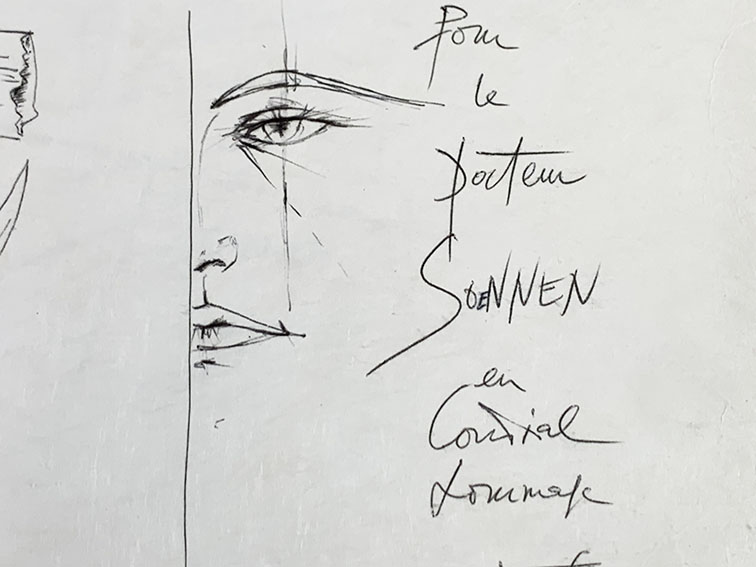 Pour
le
Docteur
SOENNEN
en
Cordial
Hommage